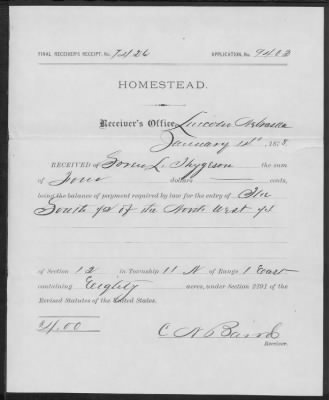 FINAL RECEIVER'S RECEIPT, No. 7426 APPLICATION, No. 9402
HOMESTEAD.
Receiver's Office, Lincoln Nebraska
January 14th, 1878.
RECEIVED of Soren L. Thygeson the sum
of Four dollars — cents,
being the balance of payment required by law for the entry of The
South ½ of the North West ¼
of Section 12 in Township 11 N of Range 1 East
containing Eighty acres, under Section 2291 of the
Revised Statutes of the United States.
$4.00
C N Baird
Receiver.